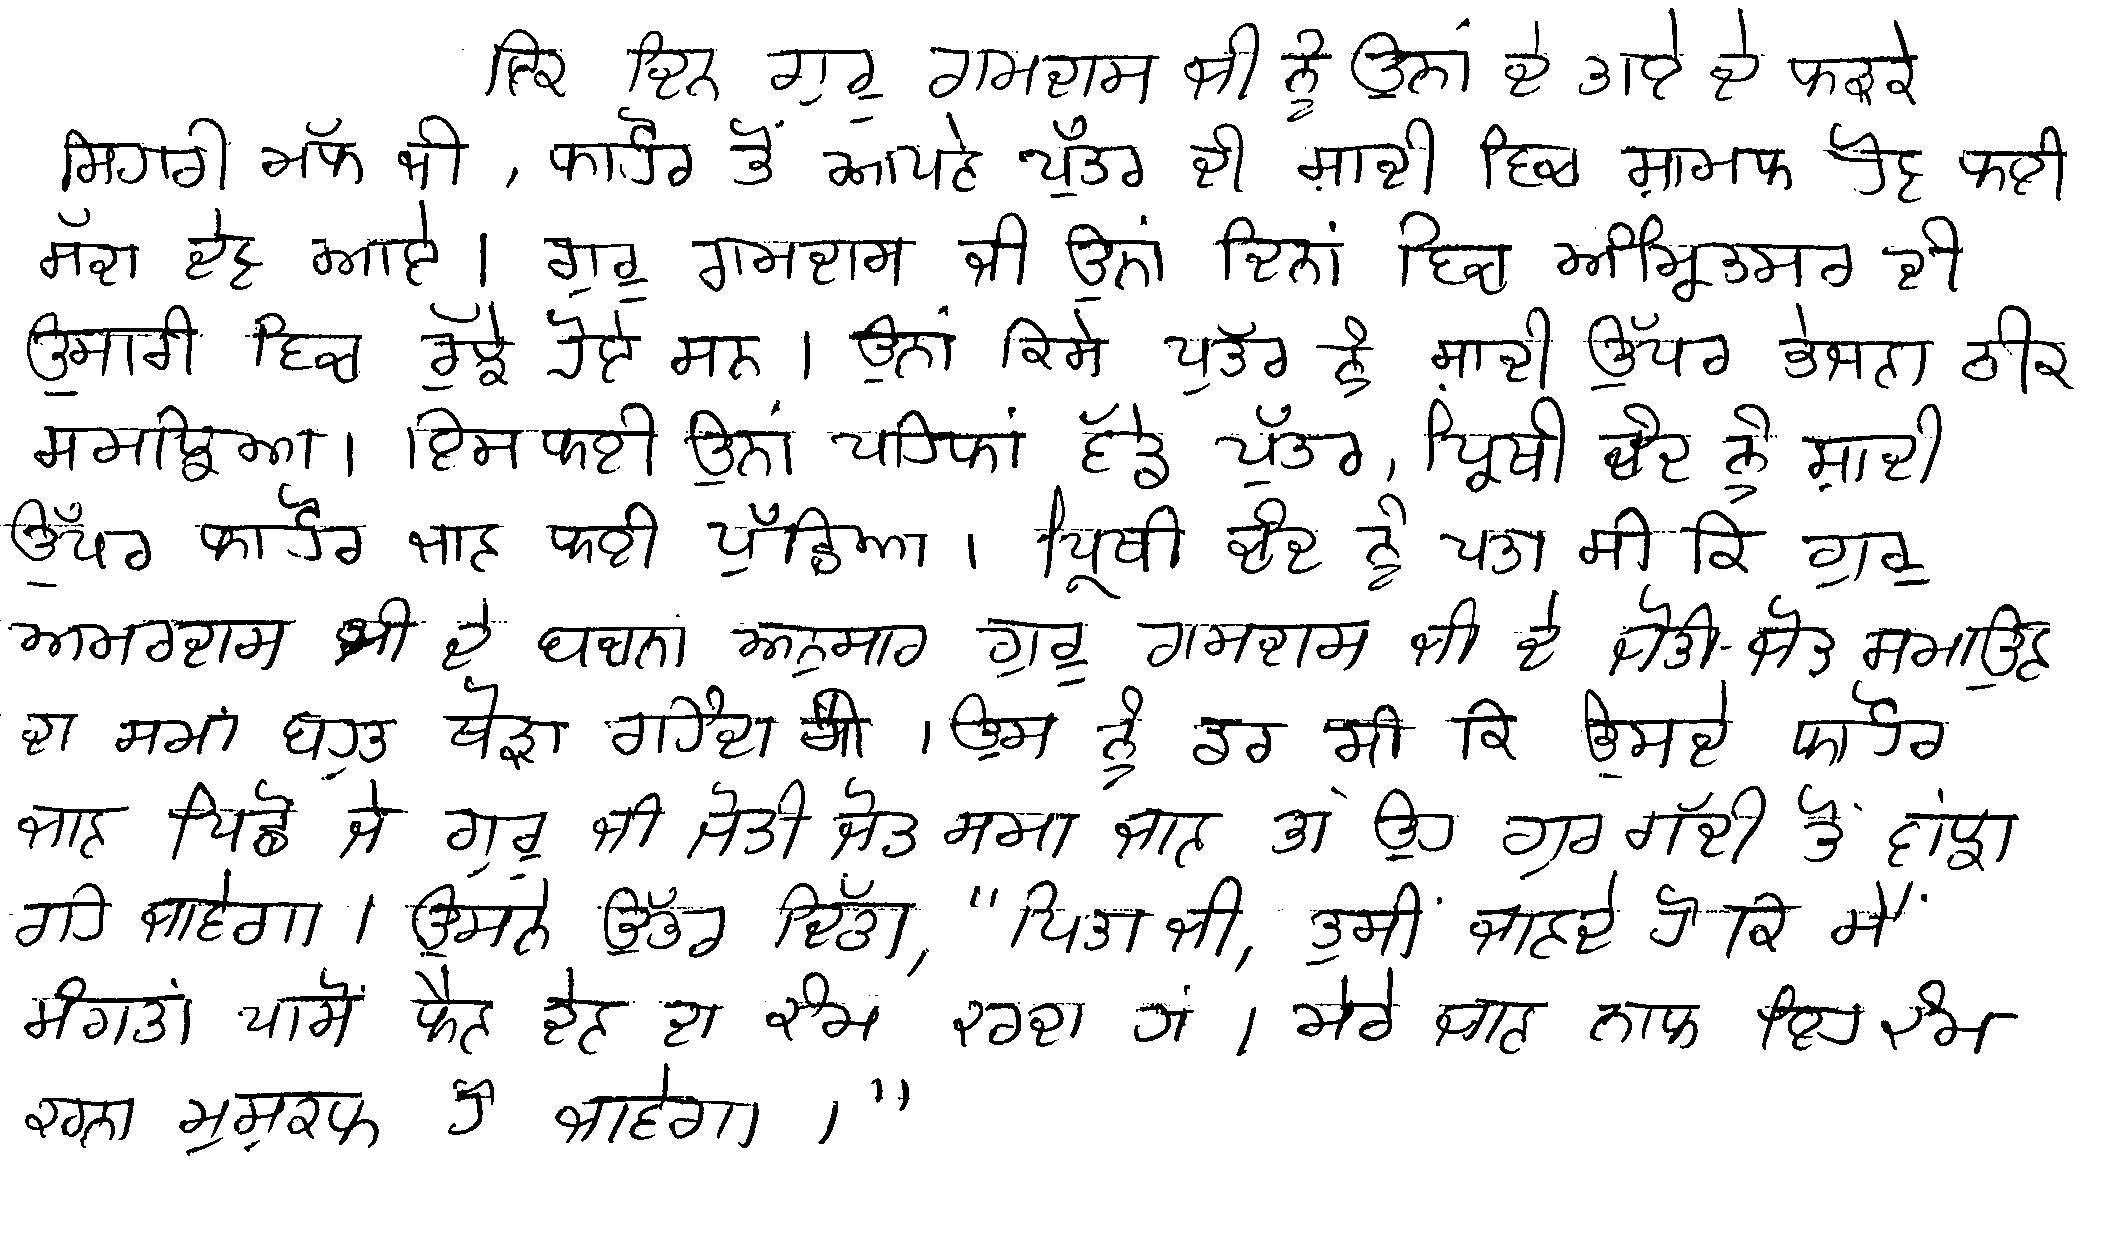 ਇਕ ਦਿਨ ਗੁਰੂ ਰਾਮਦਾਸ ਜੀ ਨੂੰ ਉਨਾਂ ਦੇ ਤਾਏ ਦੇ ਲੜਕੇ
ਸਿਹਾਰੀ ਮੱਲ ਜੀ, ਲਾਹੌਰ ਤੋਂ ਆਪਣੇ ਪੁੱਤਰ ਦੀ ਸ਼ਾਦੀ ਵਿਚ ਸ਼ਾਮਲ ਹੋਣ ਲਈ
ਸੱਦਾ ਦੇਣ ਆਏ। ਗੁਰੂ ਰਾਮਦਾਸ ਜੀ ਉਨਾਂ ਦਿਨਾਂ ਵਿਚ ਅੰਮ੍ਰਿਤਸਰ ਦੀ
ਉਸਾਰੀ ਵਿਚ ਰੁੱਝੇ ਹੋਏ ਸਨ। ਉਨਾਂ ਕਿਸੇ ਪੁਤੱਰ ਨੂੰ ਸ਼ਾਦੀ ਉੱਪਰ ਭੇਜਣਾ ਠੀਕ
ਸਮਝਿਆ। ਇਸ ਲਈ ਉਨਾਂ ਪਹਿਲਾਂ ਵੱਡੇ ਪੁੱਤਰ, ਪ੍ਰਿਥੀ ਚੰਦ ਨੂੰ ਸ਼ਾਦੀ
ਉੱਪਰ ਲਾਹੌਰ ਜਾਣ ਲਈ ਪੁੱਛਿਆ। ਪ੍ਰਿਥੀ ਚੰਦ ਨੂੰ ਪਤਾ ਸੀ ਕਿ ਗੁਰੂ
ਅਮਰਦਾਸ ਜੀ ਦੇ ਬਚਨਾਂ ਅਨੁਸਾਰ ਗੁਰੂ ਰਾਮਦਾਸ ਜੀ ਦੇ ਜੋਤੀ-ਜੋਤ ਸਮਾਉਣ
ਦਾ ਸਮਾਂ ਬਹੁਤ ਥੋੜਾ ਰਹਿੰਦਾ ਸੀ। ਉਸ ਨੂੰ ਡਰ ਸੀ ਕਿ ਉਸਦੇ ਲਾਹੌਰ
ਜਾਣ ਪਿਛੋਂ ਜੇ ਗੁਰੂ ਜੀ ਜੋਤੀ ਜੋਤ ਸਮਾ ਜਾਣ ਤਾਂ ਉਹ ਗੁਰਗੱਦੀ ਤੋਂ ਵਾਂਝਾ
ਰਹਿ ਜਾਵੇਗਾ। ਉਸਨੇ ਉੱਤਰ ਦਿੱਤਾ, "ਪਿਤਾ ਜੀ, ਤੁਸੀਂ ਜਾਣਦੇ ਹੋ ਕਿ ਮੈਂ
ਸੰਗਤਾਂ ਪਾਸੋਂ ਲੈਣ ਦੇਣ ਦਾ ਕੰਮ ਕਰਦਾ ਹਾਂ। ਮੇਰੇ ਜਾਣ ਨਾਲ ਇਹ ਕੰਮ
ਕਰਨਾ ਮੁਸ਼ਕਲ ਹੋ ਜਾਵੇਗਾ।"